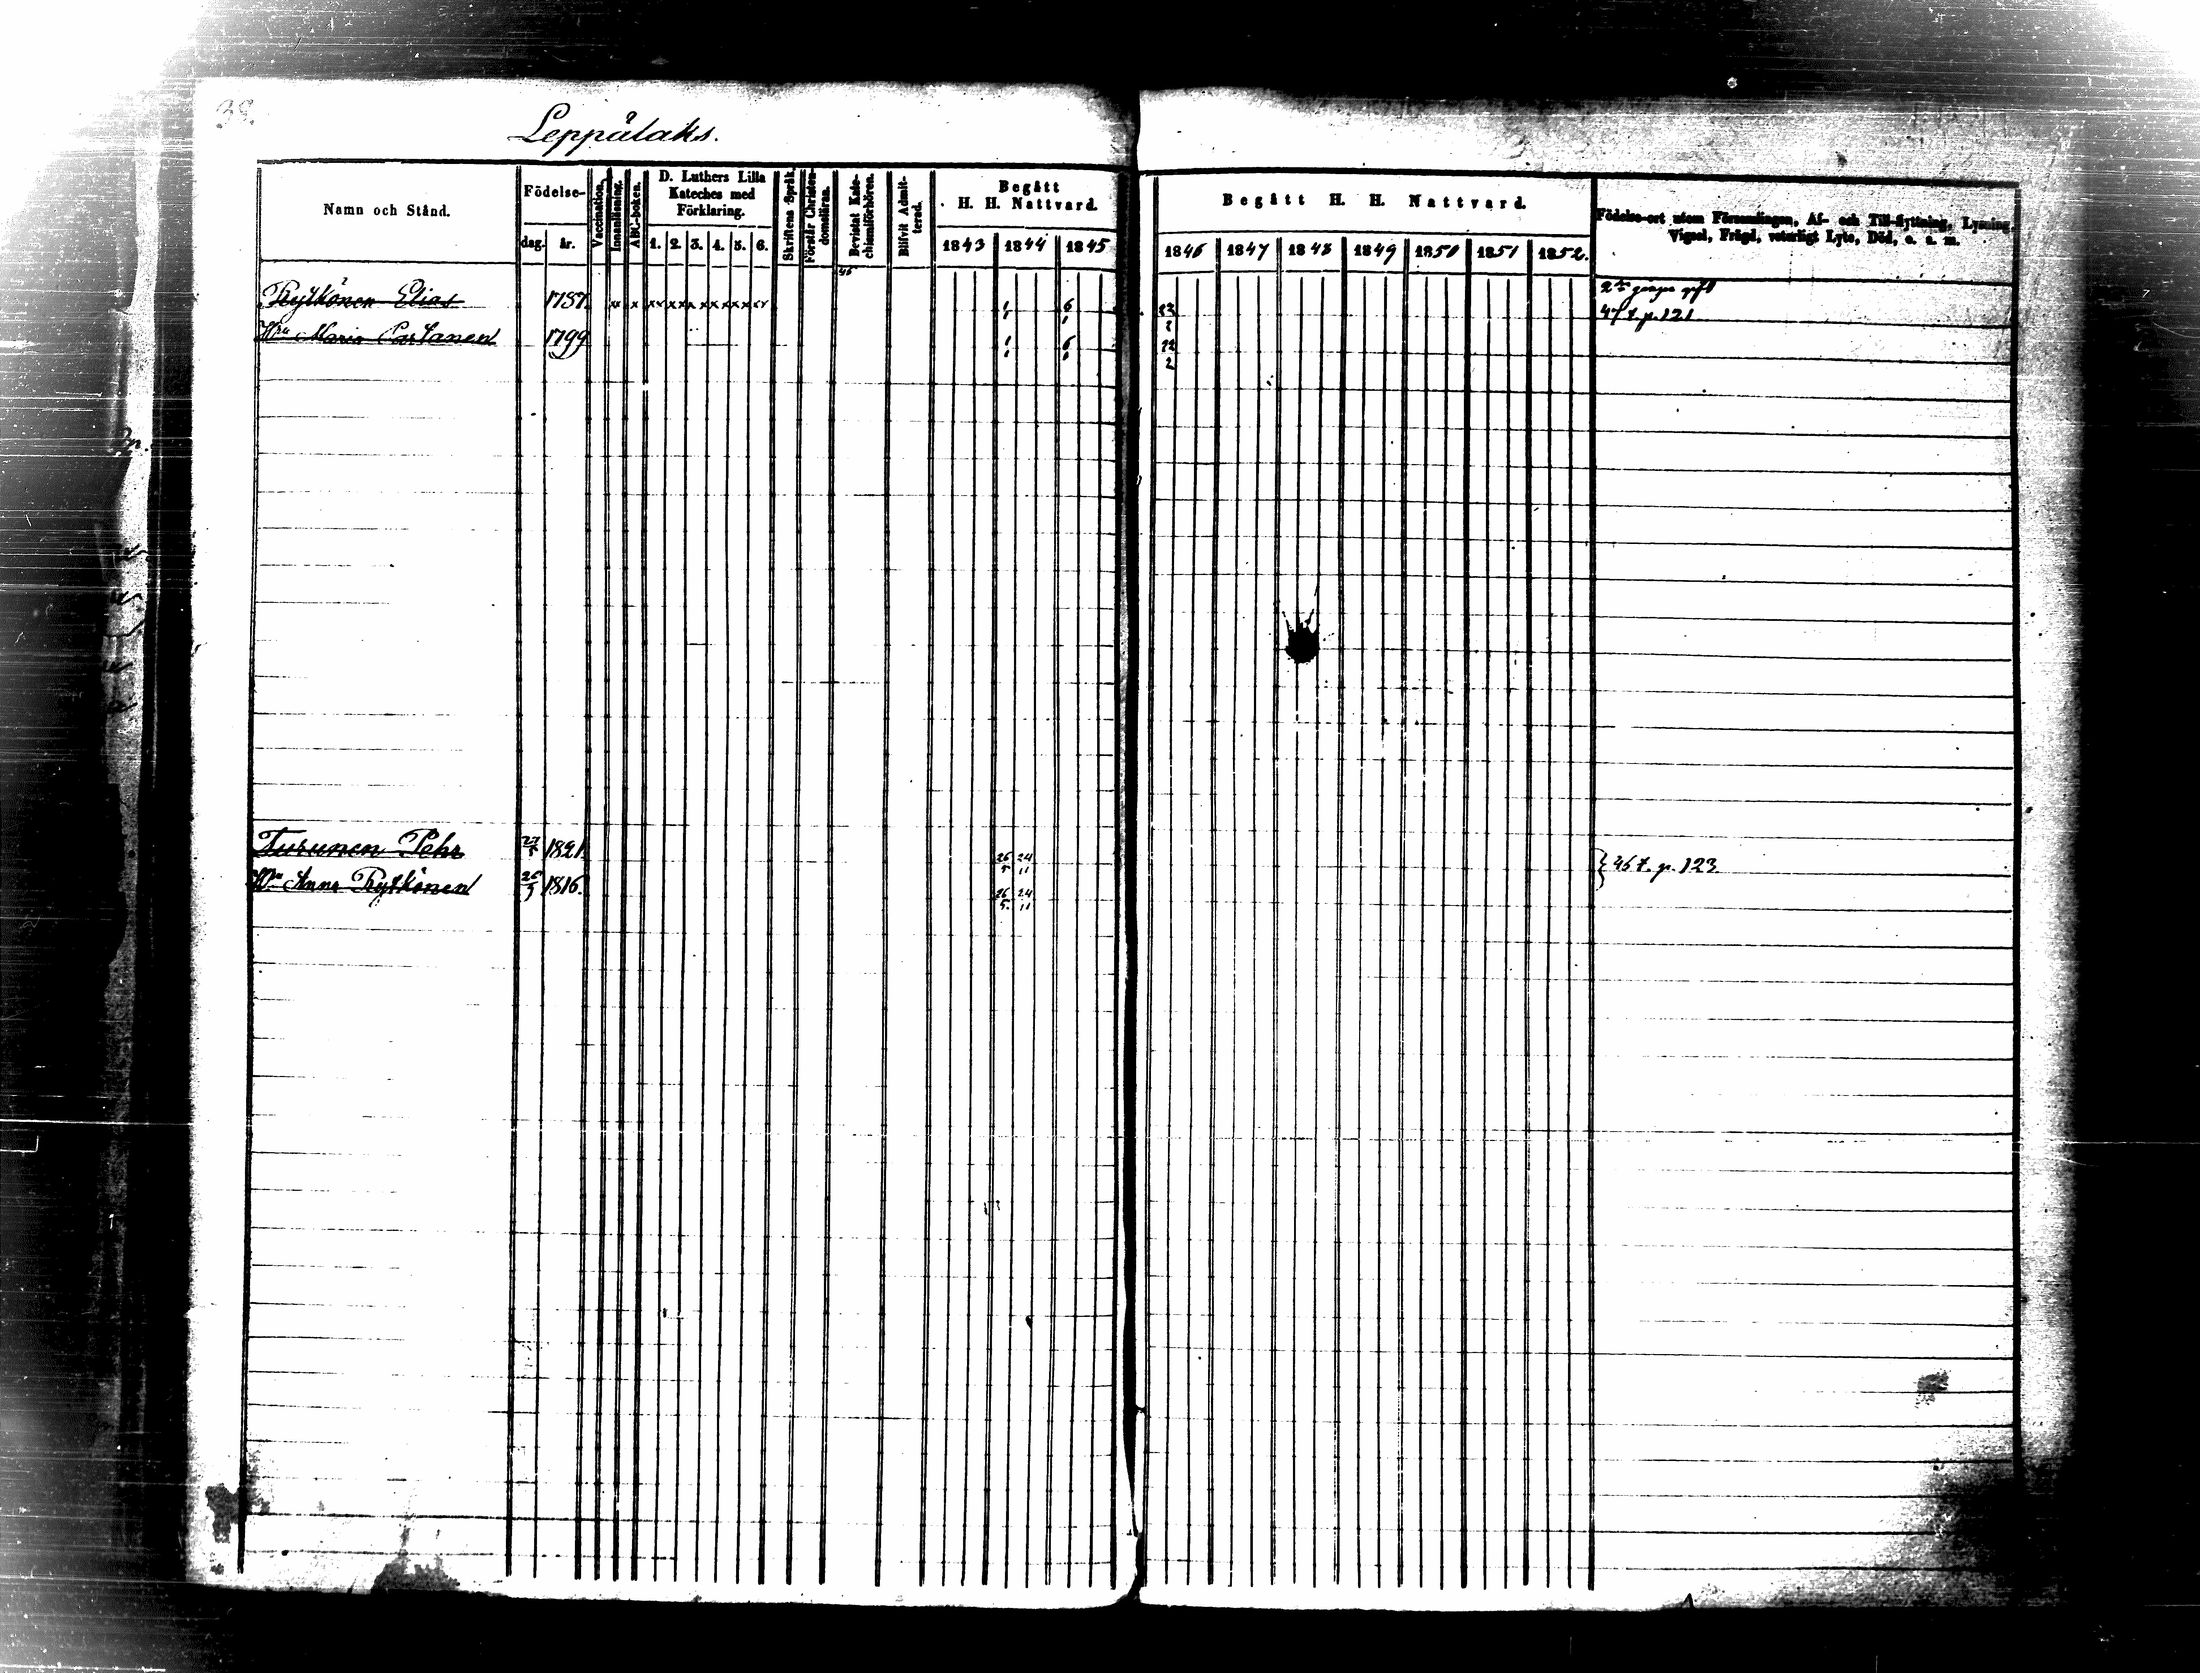 38.
Leppälaks.
Namn och Stånd.
Födelse-
dag. år.
Vaccination.
Innanläsning.
ABC-boken.
D. Luthers Lilla Kateches med Förklaring.
1. 2. 3. 4. 5. 6.
Skriftens Språk.
Förstår Christendomsläran.
Bevistat Katechismiförhören.
Blifvit Admitterad.
Begått H. H. Nattvard.
1843 1844 1845
Begått H. H. Nattvard.
1846 1847 1848 1849 1850 1851 1852.
Födelse-ort utom Församlingen, Af- och Till-flyttning, Lysning, Vigsel, Frägd, veterligt Lyte, Död, o. s. m.
Rytkönen Elias 1787. x x xx xx x xx x x x xx 6 23
p. 121
Hu Maria Partanen 1799 6 22 2
Turunen Pehr 1821. 26 24 5 11
46 t. p. 123.
Hu Anna Rytkönen 1816. 26 24 5. 11